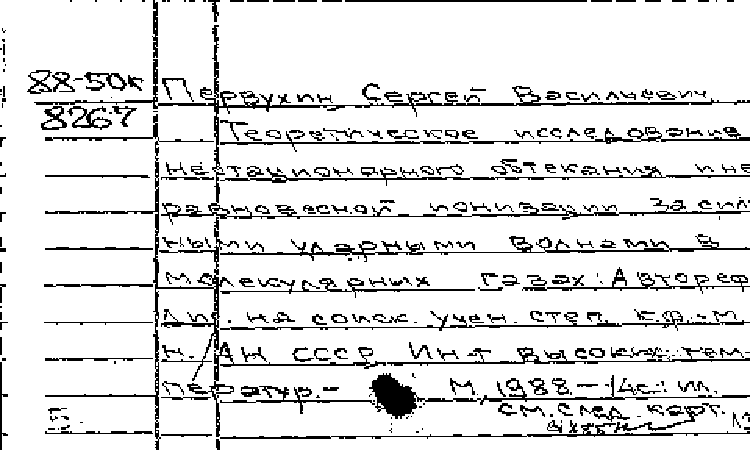 88-50к Первухин Сергей Васильевич
8267 Теоретическое исследование
нестационарного обтекания и не
равновесной ионизации за силь
ными ударными волнами в
молекулярных газах: Автореф
дис. на соиск. учен. степ. к.ф.-м.
н. АН СССР Ин-т высоких тем-
ператур.- М, 1988.-14с.: ил.
см. след. карт.
Б.